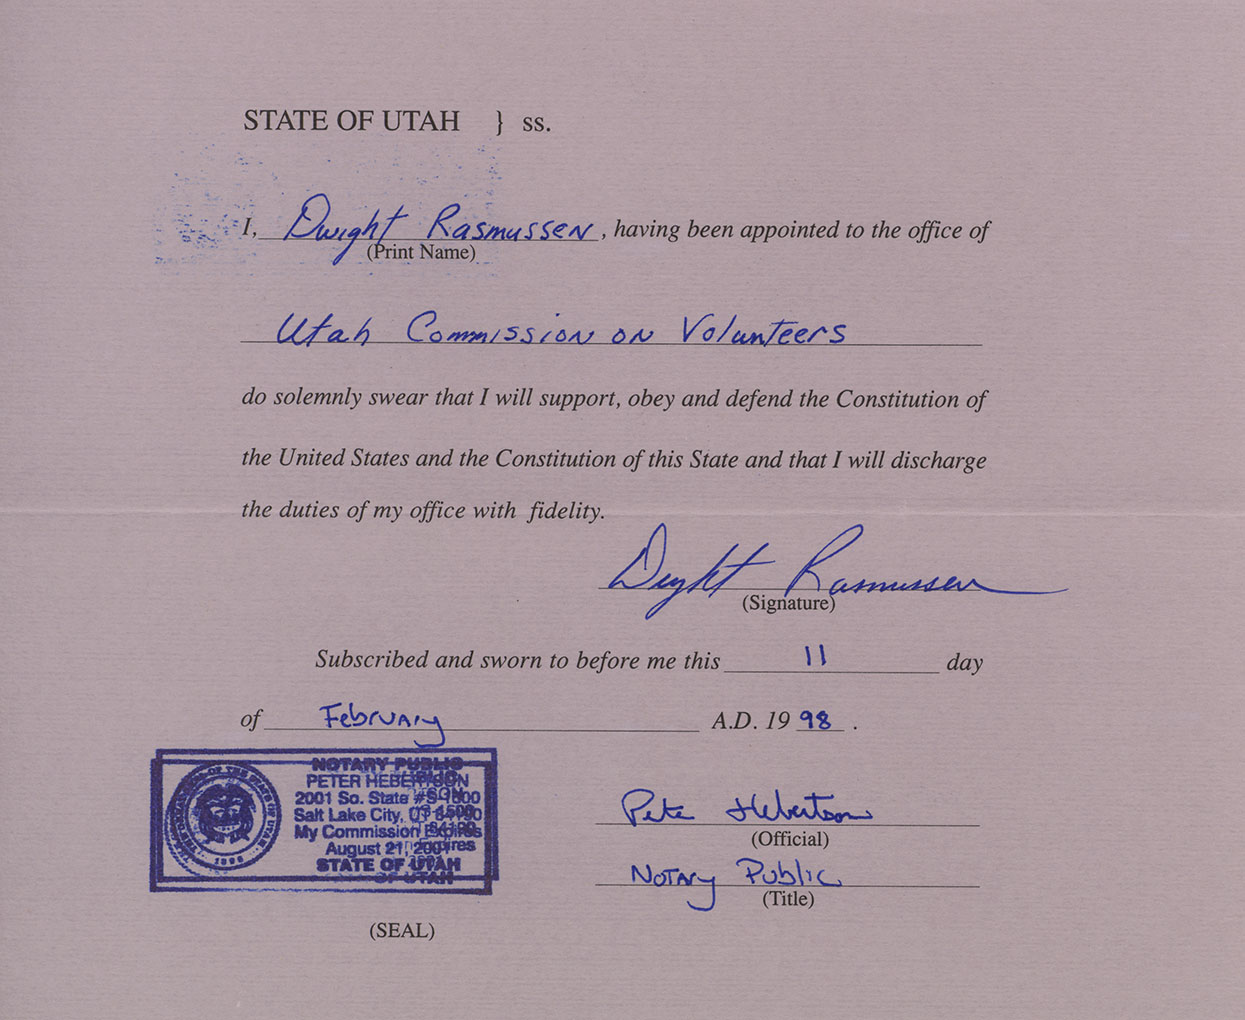 STATE OF UTAH } ss.
I, Dwight Rasmussen, having been appointed to the office of
(Print Name)
Utah Commission on Volunteers
do solemnly swear that I will support, obey and defend the Constitution of
the United States and the Constitution of this State and that I will discharge
the duties of my office with fidelity.
Dwight Rasmussen
(Signature)
Subscribed and sworn to before me this 11 day
of February A.D. 19 98 .
NOTARY PUBLIC
PETER HEBERTSON
2001 So. State
Salt Lake City, UT
My Commission Expires
August 21,
STATE OF UTAH
OF UTAH
1896
Pete Hebertson
(Official)
Notary Public
(Title)
(SEAL)